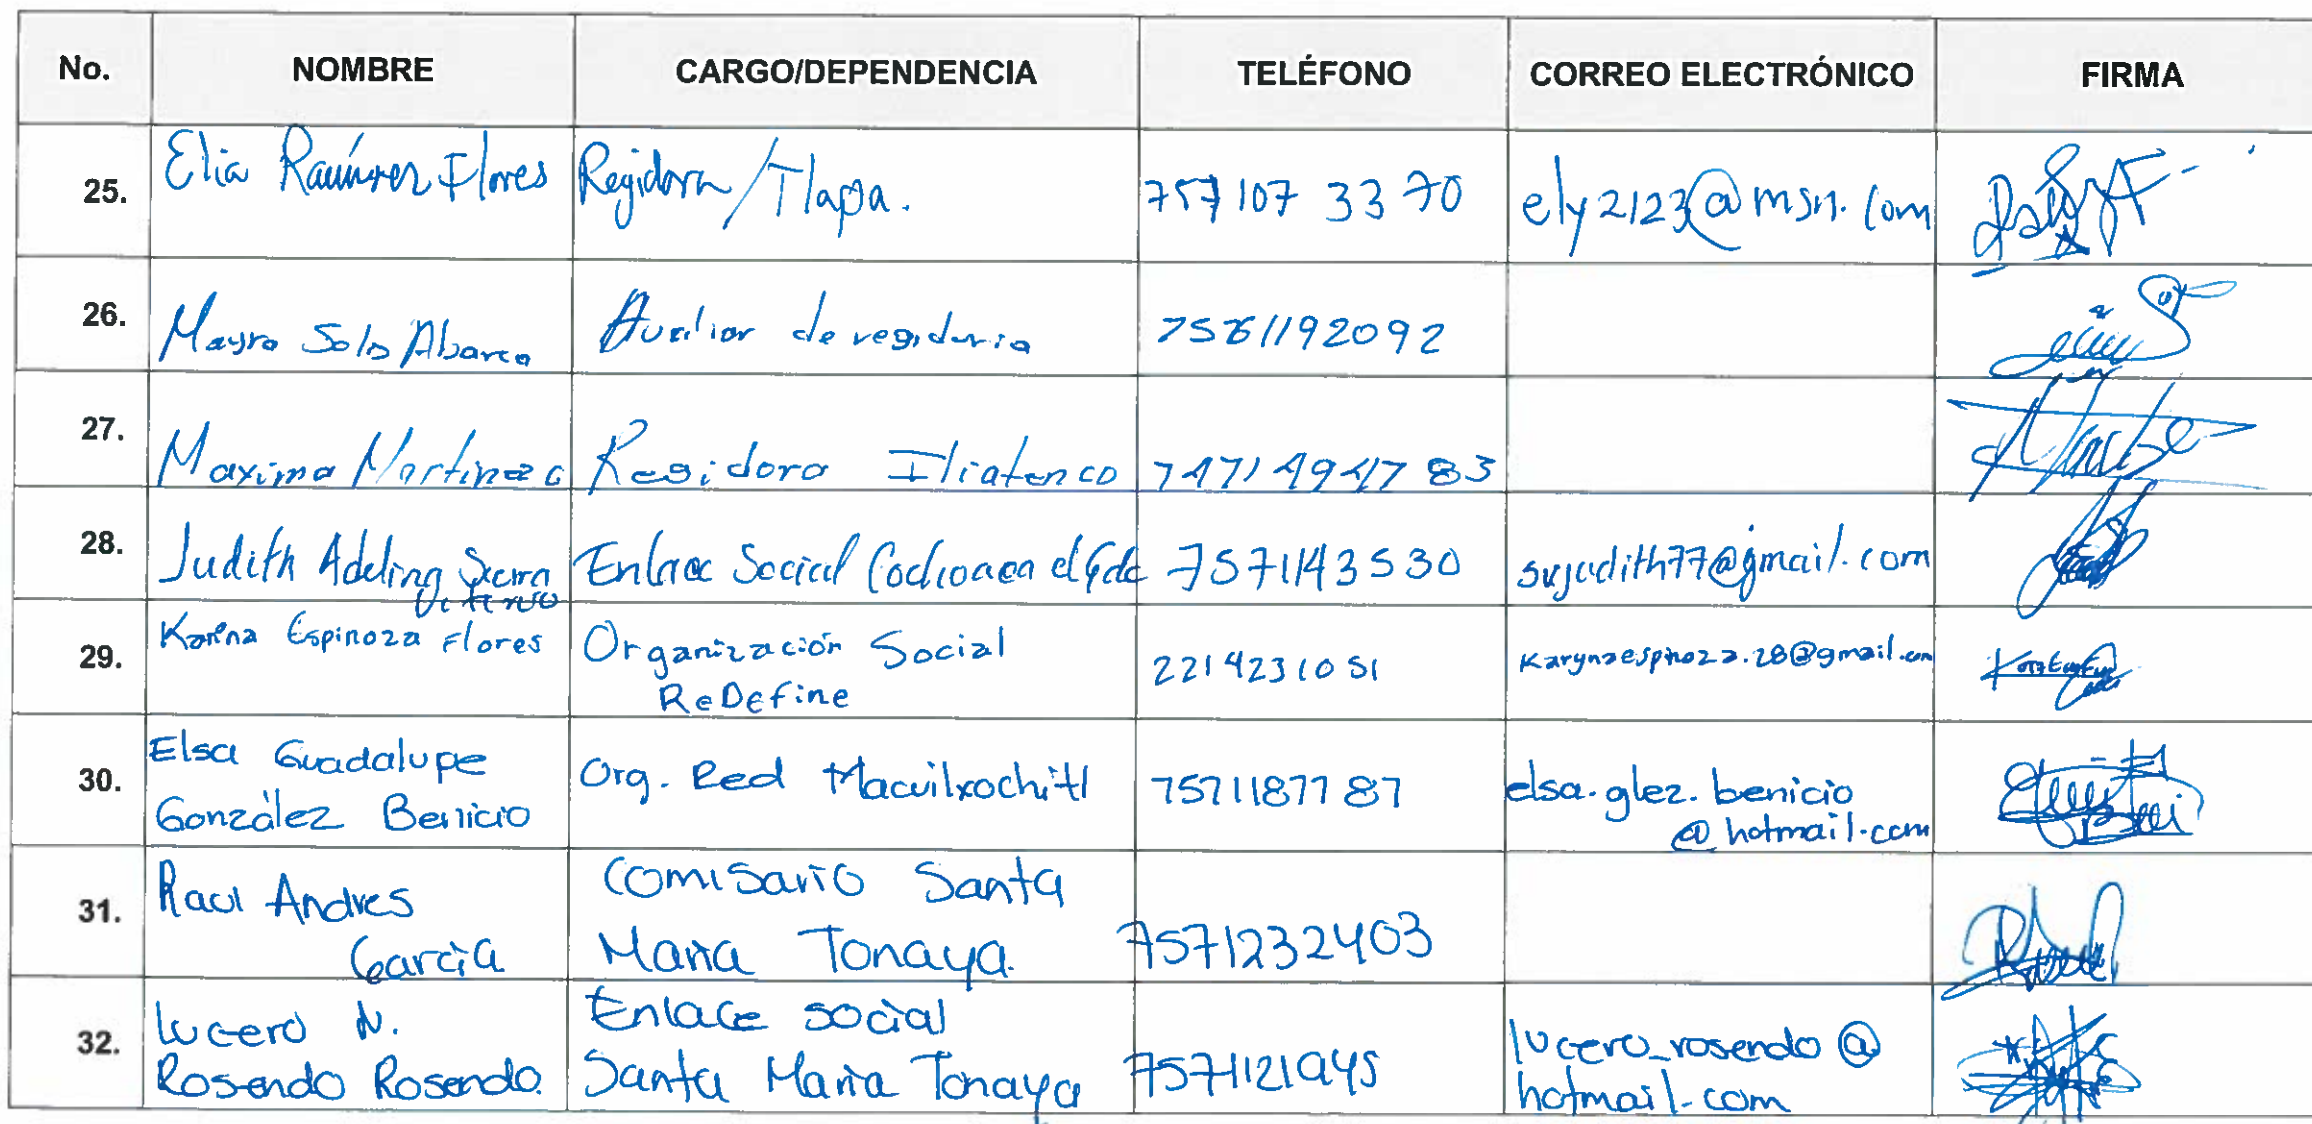 No. NOMBRE CARGO/DEPENDENCIA TELÉFONO CORREO ELECTRÓNICO FIRMA
25. Elia Ramírez Flores Regidora/Tlapa. 757 107 33 70 ely2123@msn.com
26. Mayra Solis Abarca Auxiliar de regiduria 7561192092
27. Maxima Martinez C Regidora Iliatenco 7471494783
28. Judith Adeling Sierra Enlace Social Cochoapa el Gde 7571143530 sujudith77@gmail.com
29. Karina Espinoza Flores Organización Social 2214231051 Karynaespinoza.28@gmail.com
ReDefine
30. Elsa Guadalupe Org. Red Macuilxochitl 7571187787 elsa.glez.benicio
González Benicio @hotmail.com
31. Raul Andres Comisario Santa
García Maria Tonaya. 7571232403
32. lucero N. Enlace social lucero_rosendo@
Rosendo Rosendo. Santa Maria Tonaya 7571121945 hotmail.com